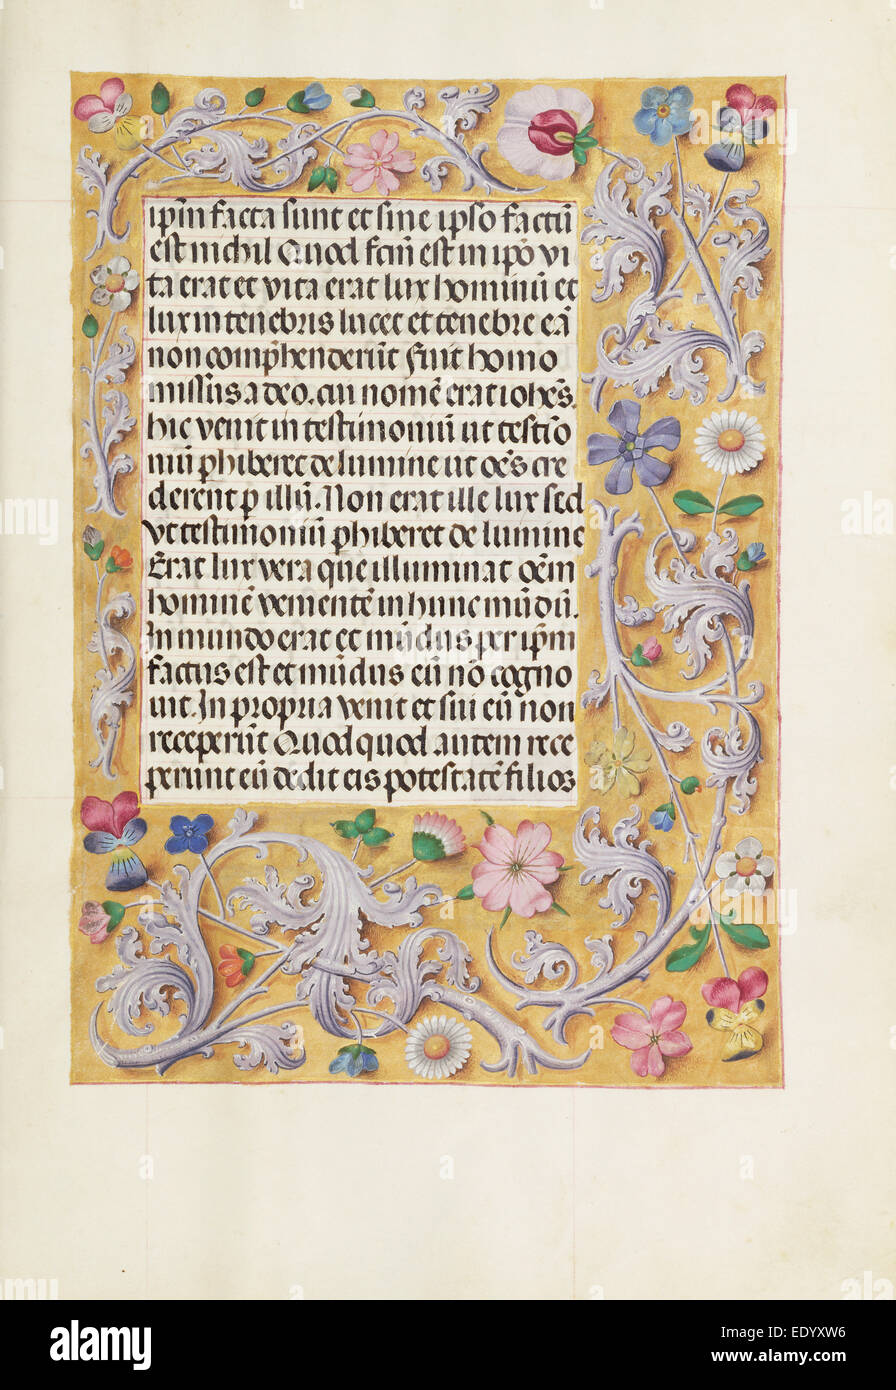 ip̄m facta sunt et sine ipso factū
est nichil Quod fcm̄ est in ipō vi
ta erat et vita erat lux hominū et
lux in tenebris lucet et tenebre eā
non comp̄henderūt Fuit homo
missus a deo. cui nomē erat iohēs.
hic venit in testimoniū ut testīo
niū p̄hiberet de lumine ut oēs cre
derent p illū. Non erat ille lux sed
vt testimoniū p̄hiberet de lumine
Erat lux vera que illuminat oēm
hominē venientē in hunc mūdū.
In mundo erat et mūdus per ip̄m
factus est et mūdus eū nō cogno
uit. In propria venit et sui eū non
receperūt Quod quod autem rece
perunt eū dedit eis potestatē filios
alamy
Image ID: EDYXW6
www.alamy.com